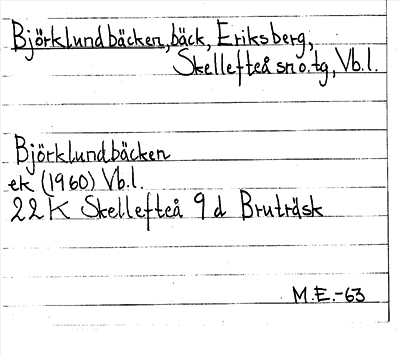 Björklundbäcken, bäck, Eriksberg,
Skellefteå sn o. tg, Vb.l.
Björklundbäcken
ek (1960) Vb.l.
22K Skellefteå 9d Bruträsk
M.E.-63